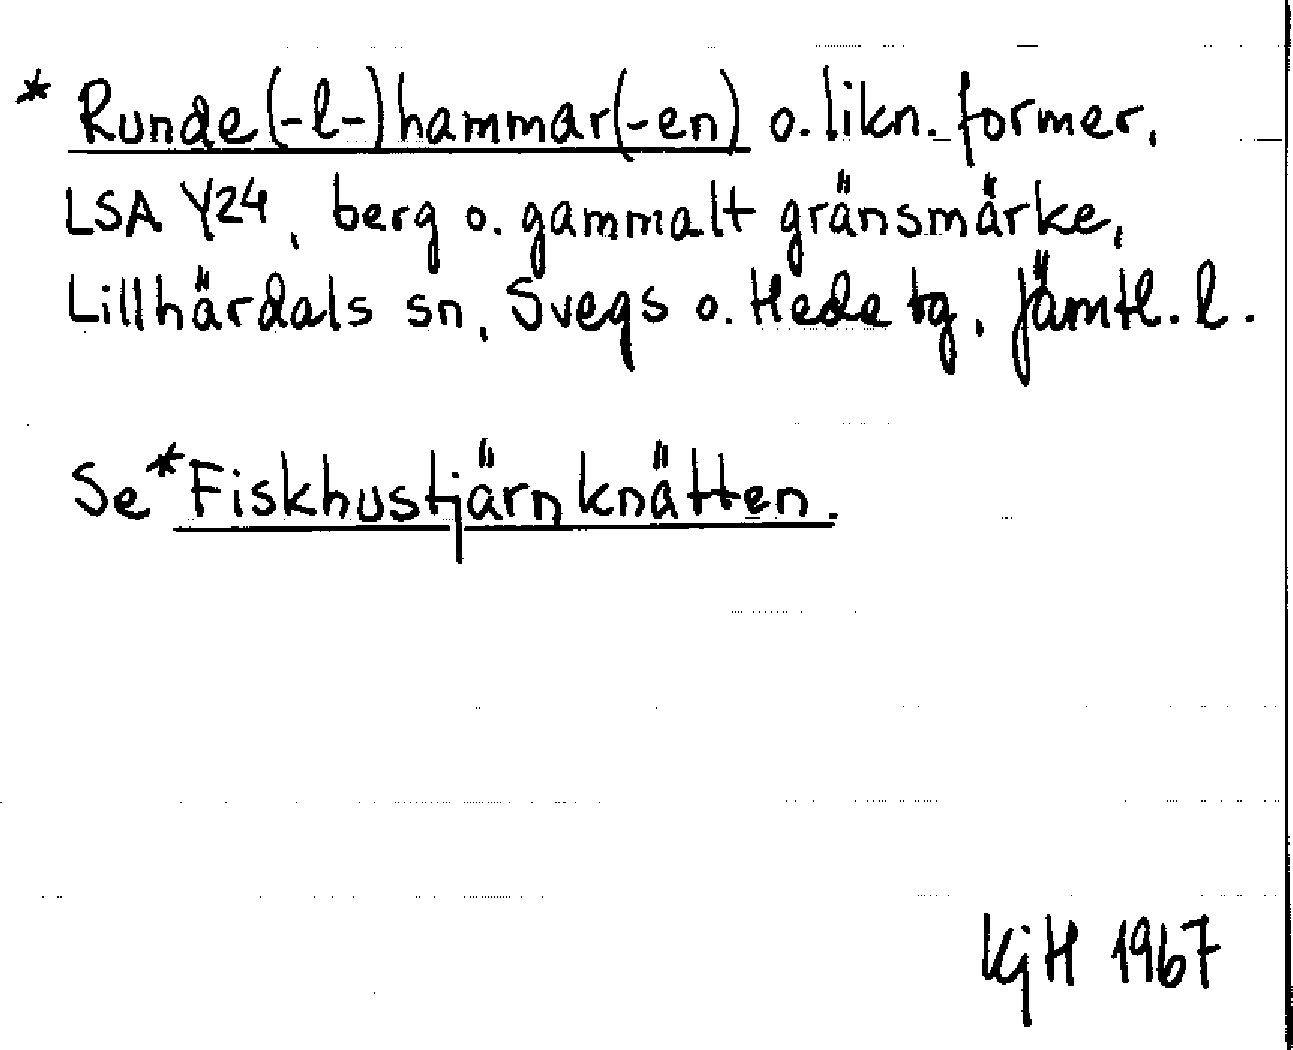 * Runde(-l-)hammar(-en) o. likn. former,
LSA Y24, berg o. gammalt gränsmärke,
Lillhärdals sn, Svegs o. Hede tg, Jämtl. l.
Se *Fiskhustjärnknätten.
KjH 1967